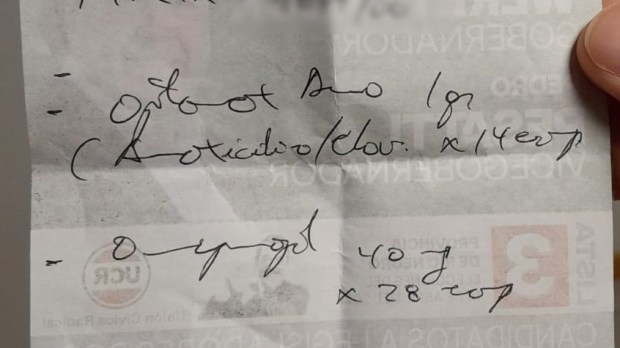 GOBERNADOR
PEDRO
PESATTI
VICEGOBERNADOR
- Optamox Duo 1gr
(Amoxicilina/Clav. x 14 comp
- Omeprazol 40 mg
x 28 comp
LISTA
3
PROVINCIA
UCR
Unión Cívica Radical
CANDIDATOS A LEGISLADORES